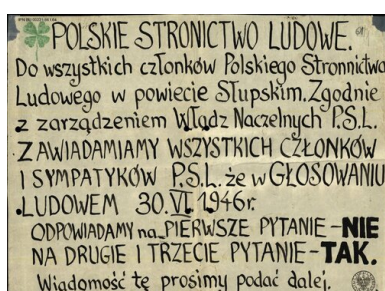 POLSKIE STRONICTWO LUDOWE.
Do wszystkich członków Polskiego Stronnictwa
Ludowego w powiecie Słupskim. Zgodnie
z zarządzeniem Władz Naczelnych P.S.L.
ZAWIADAMIAMY WSZYSTKICH CZŁONKÓW
I SYMPATYKÓW P.S.L. że w GŁOSOWANIU
LUDOWEM 30.VI.1946r.
ODPOWIADAMY na PIERWSZE PYTANIE – NIE
NA DRUGIE I TRZECIE PYTANIE – TAK.
Wiadomość tę prosimy podać dalej.